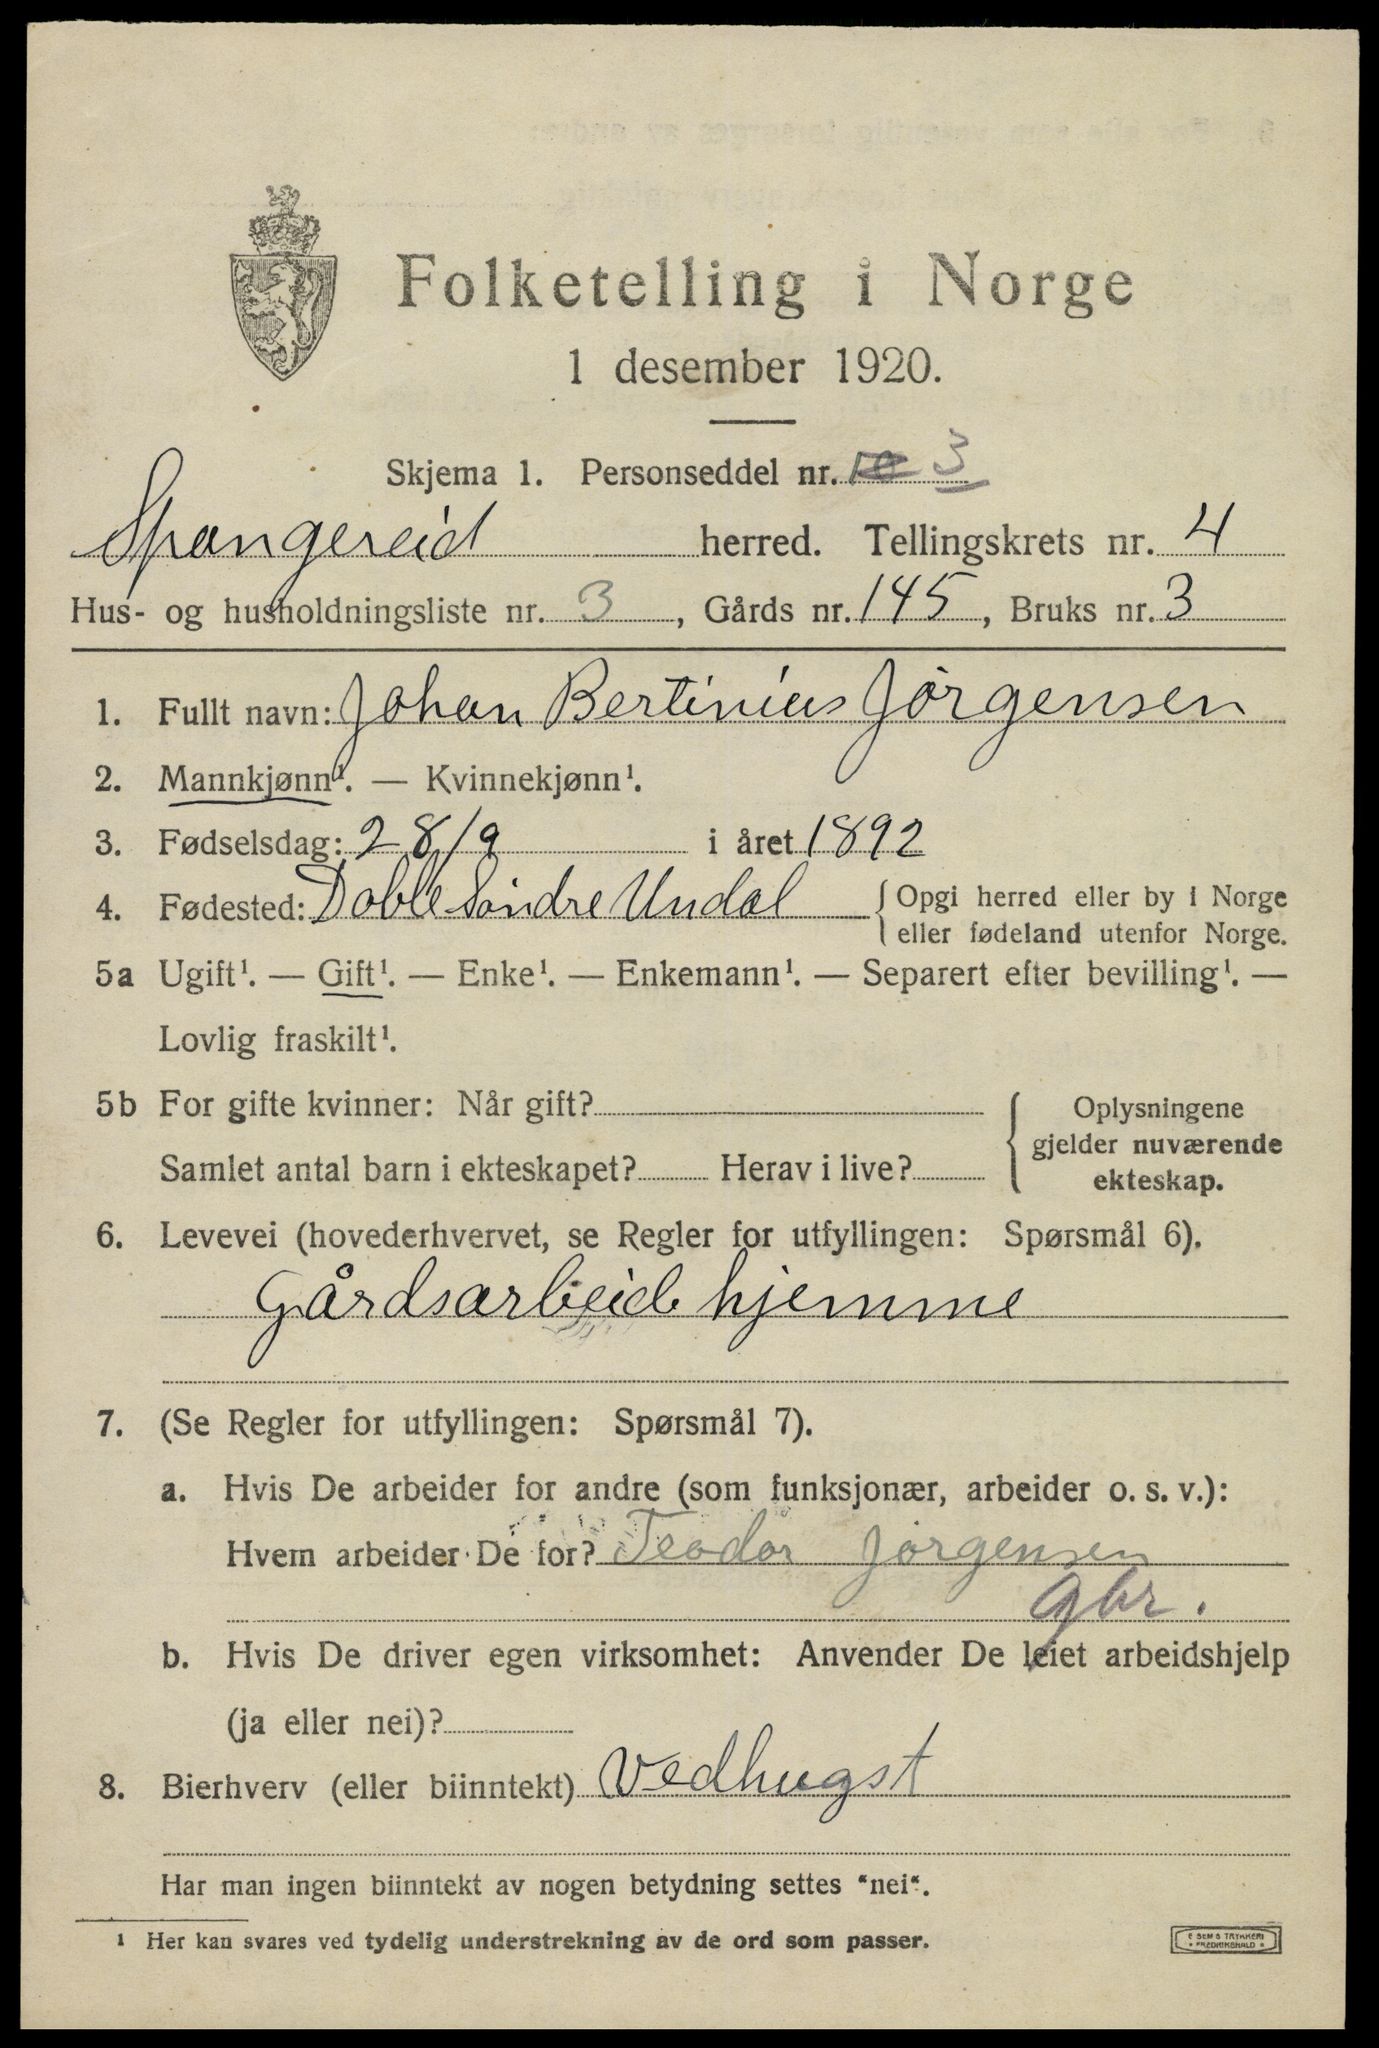 Folketelling i Norge
1 desember 1920.
Skjema 1. Personseddel nr. 3
Spangereid herred. Tellingskrets nr. 4
Hus- og husholdningsliste nr. 3, Gårds nr. 145, Bruks nr. 3
1. Fullt navn: Johan Bertinius Jørgensen
2. Mannkjønn¹. — Kvinnekjønn¹.
3. Fødselsdag: 28/9 i året 1892
4. Fødested: Doble Søndre Undal { Opgi herred eller by i Norge
eller fødeland utenfor Norge.
5a Ugift¹. — Gift¹. — Enke¹. — Enkemann¹. — Separert efter bevilling¹. —
Lovlig fraskilt¹.
5b For gifte kvinner: Når gift? { Oplysningene
gjelder nuværende
Samlet antal barn i ekteskapet? Herav i live? ekteskap.
6. Levevei (hovederhvervet, se Regler for utfyllingen: Spørsmål 6).
Gårdsarbeid hjemme
7. (Se Regler for utfyllingen: Spørsmål 7).
a. Hvis De arbeider for andre (som funksjonær, arbeider o. s. v.):
Hvem arbeider De for? Teodor Jørgensen
gbr.
b. Hvis De driver egen virksomhet: Anvender De leiet arbeidshjelp
(ja eller nei)?
8. Bierhverv (eller biinntekt) Vedhugst
Har man ingen biinntekt av nogen betydning settes "nei".
1 Her kan svares ved tydelig understrekning av de ord som passer.
E SEM'S TRYKKERI
FREDRIKSHALD